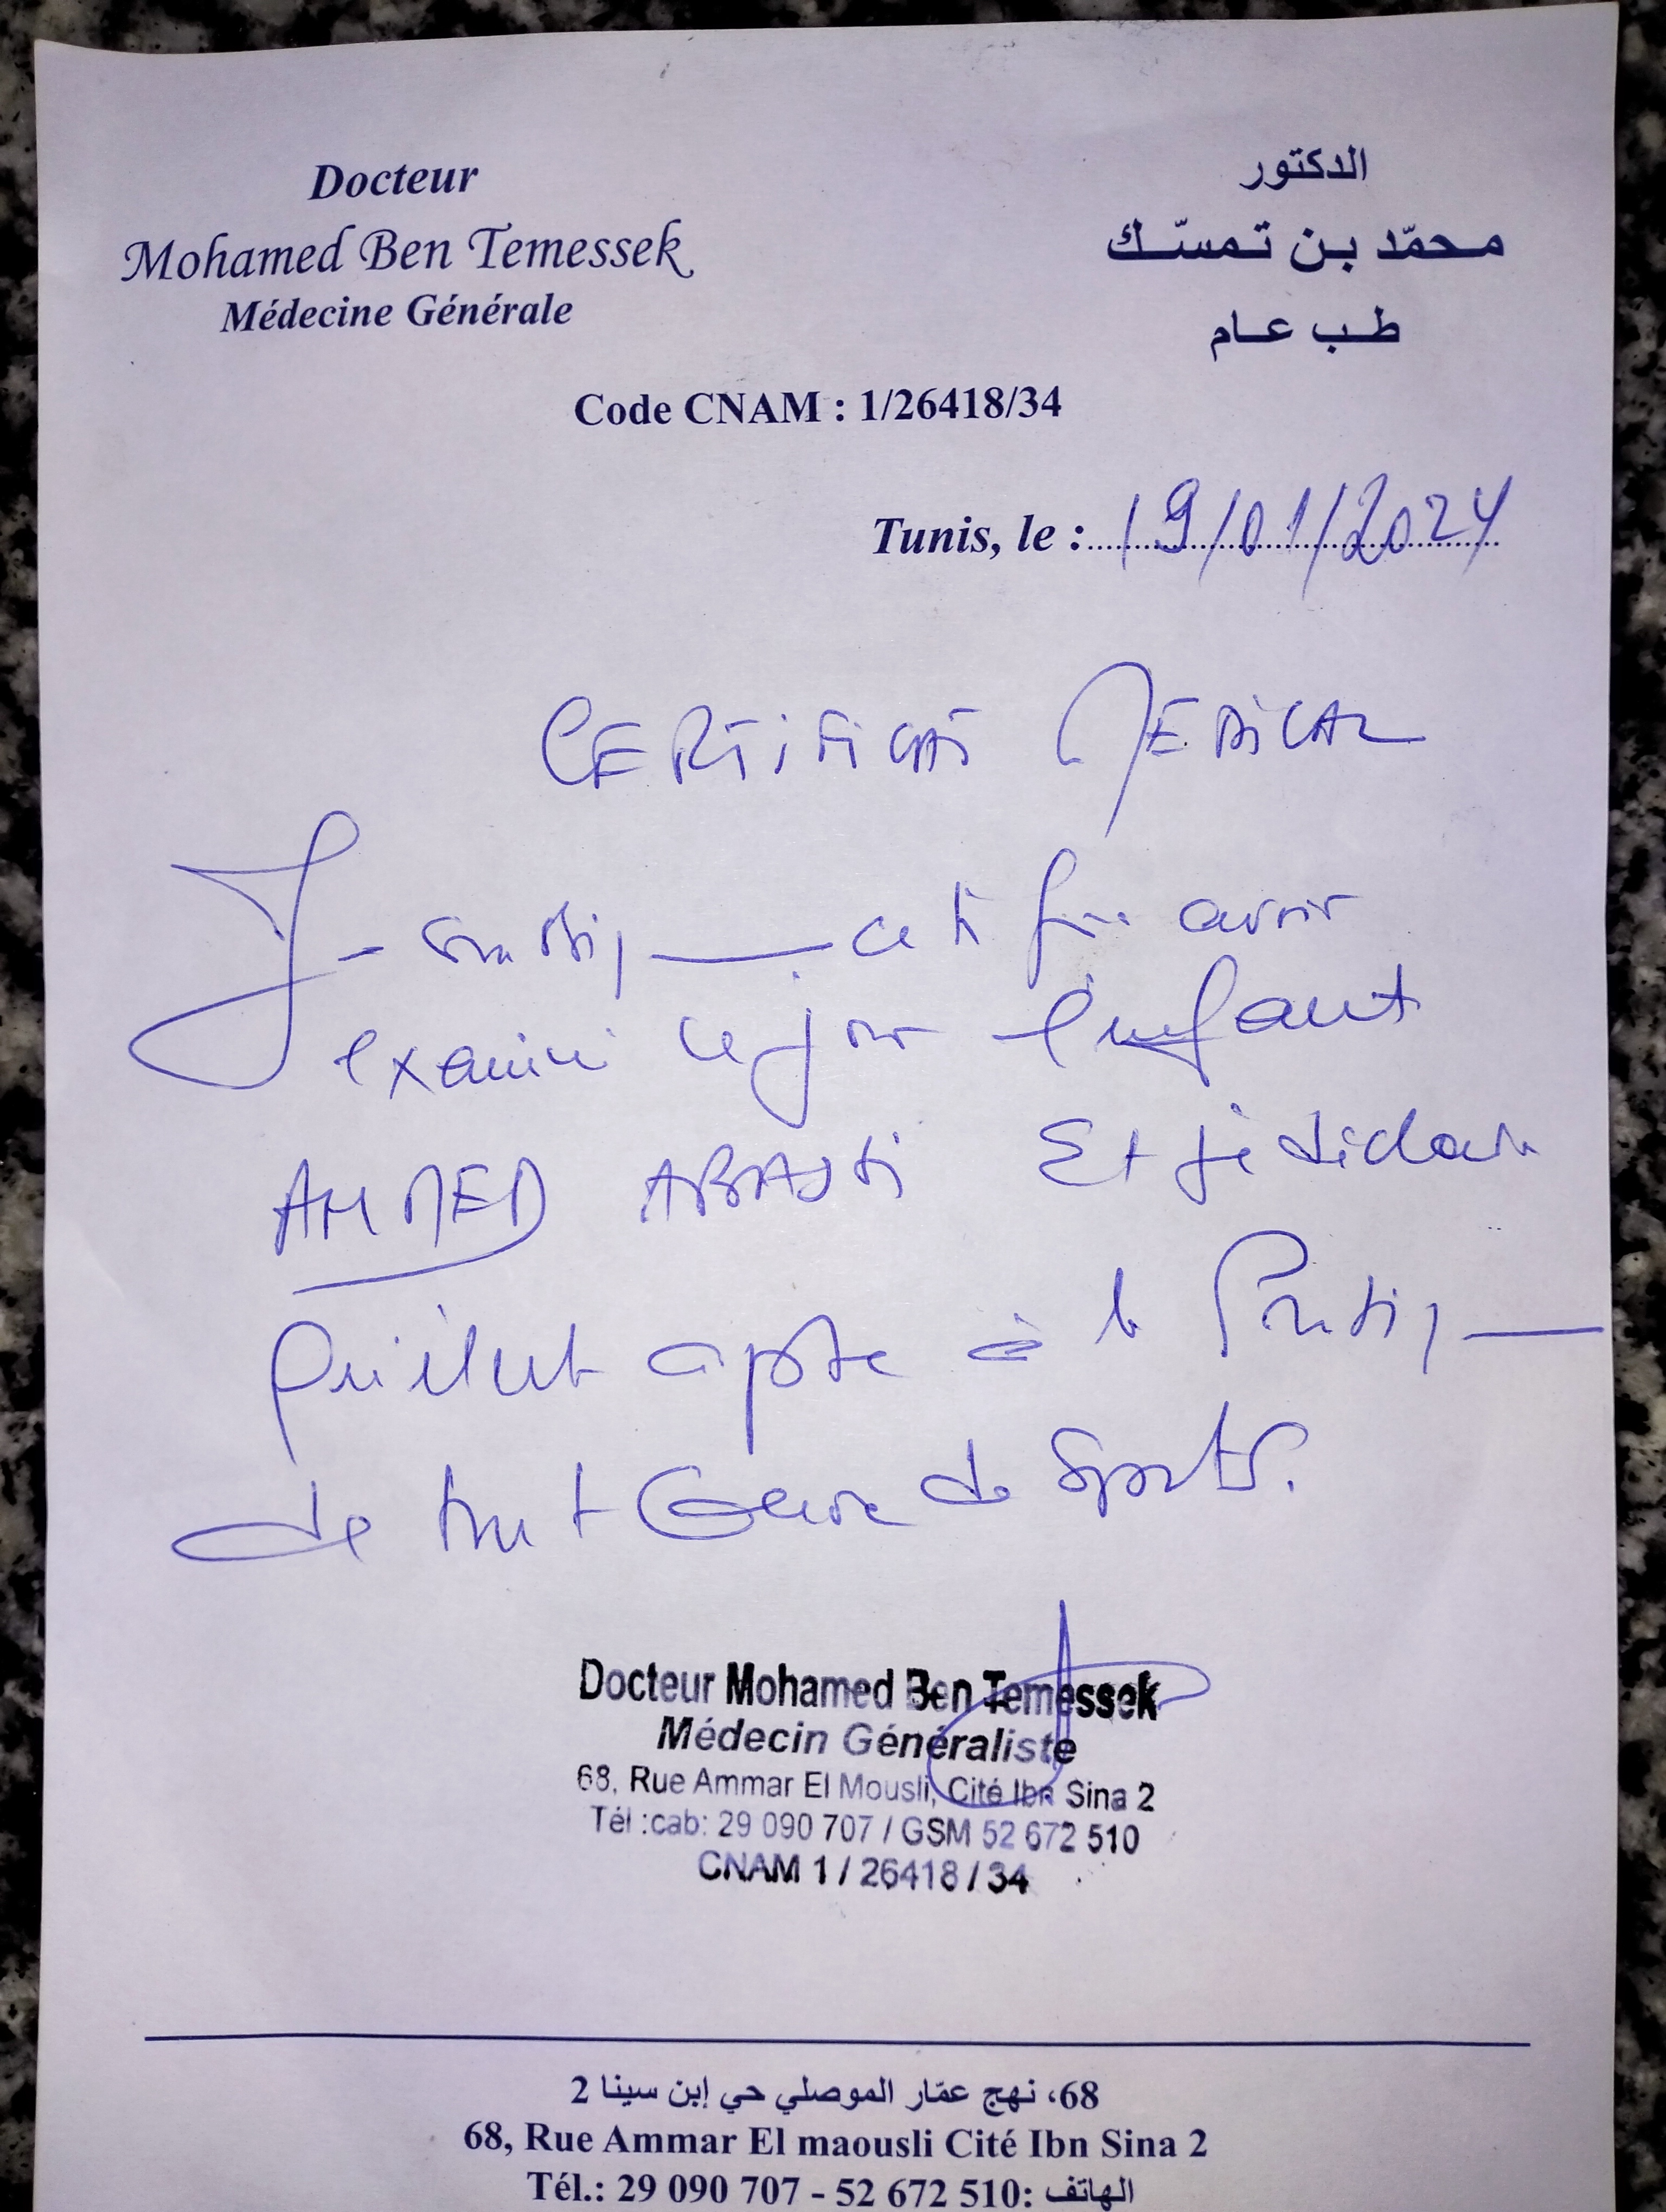 Docteur
Mohamed Ben Temessek
Médecine Générale
الدكتور
محمّد بن تمسّك
طب عام
Code CNAM : 1/26418/34
Tunis, le : 19/01/2024
CERTIFICAT MEDICAL
Je soussigné certifie avoir
examiné ce jour l'enfant
AHMED Et je déclare
qu'il est apte à la Pratique
de tout Genre de Sports.
Docteur Mohamed Ben Temessek
Médecin Généraliste
68, Rue Ammar El Mousli, Cité Ibn Sina 2
Tél :cab: 29 090 707 / GSM 52 672 510
CNAM 1 / 26418 / 34
68، نهج عمّار الموصلي حي إبن سينا 2
68, Rue Ammar El maousli Cité Ibn Sina 2
Tél.: 29 090 707 - 52 672 510 :الهاتف